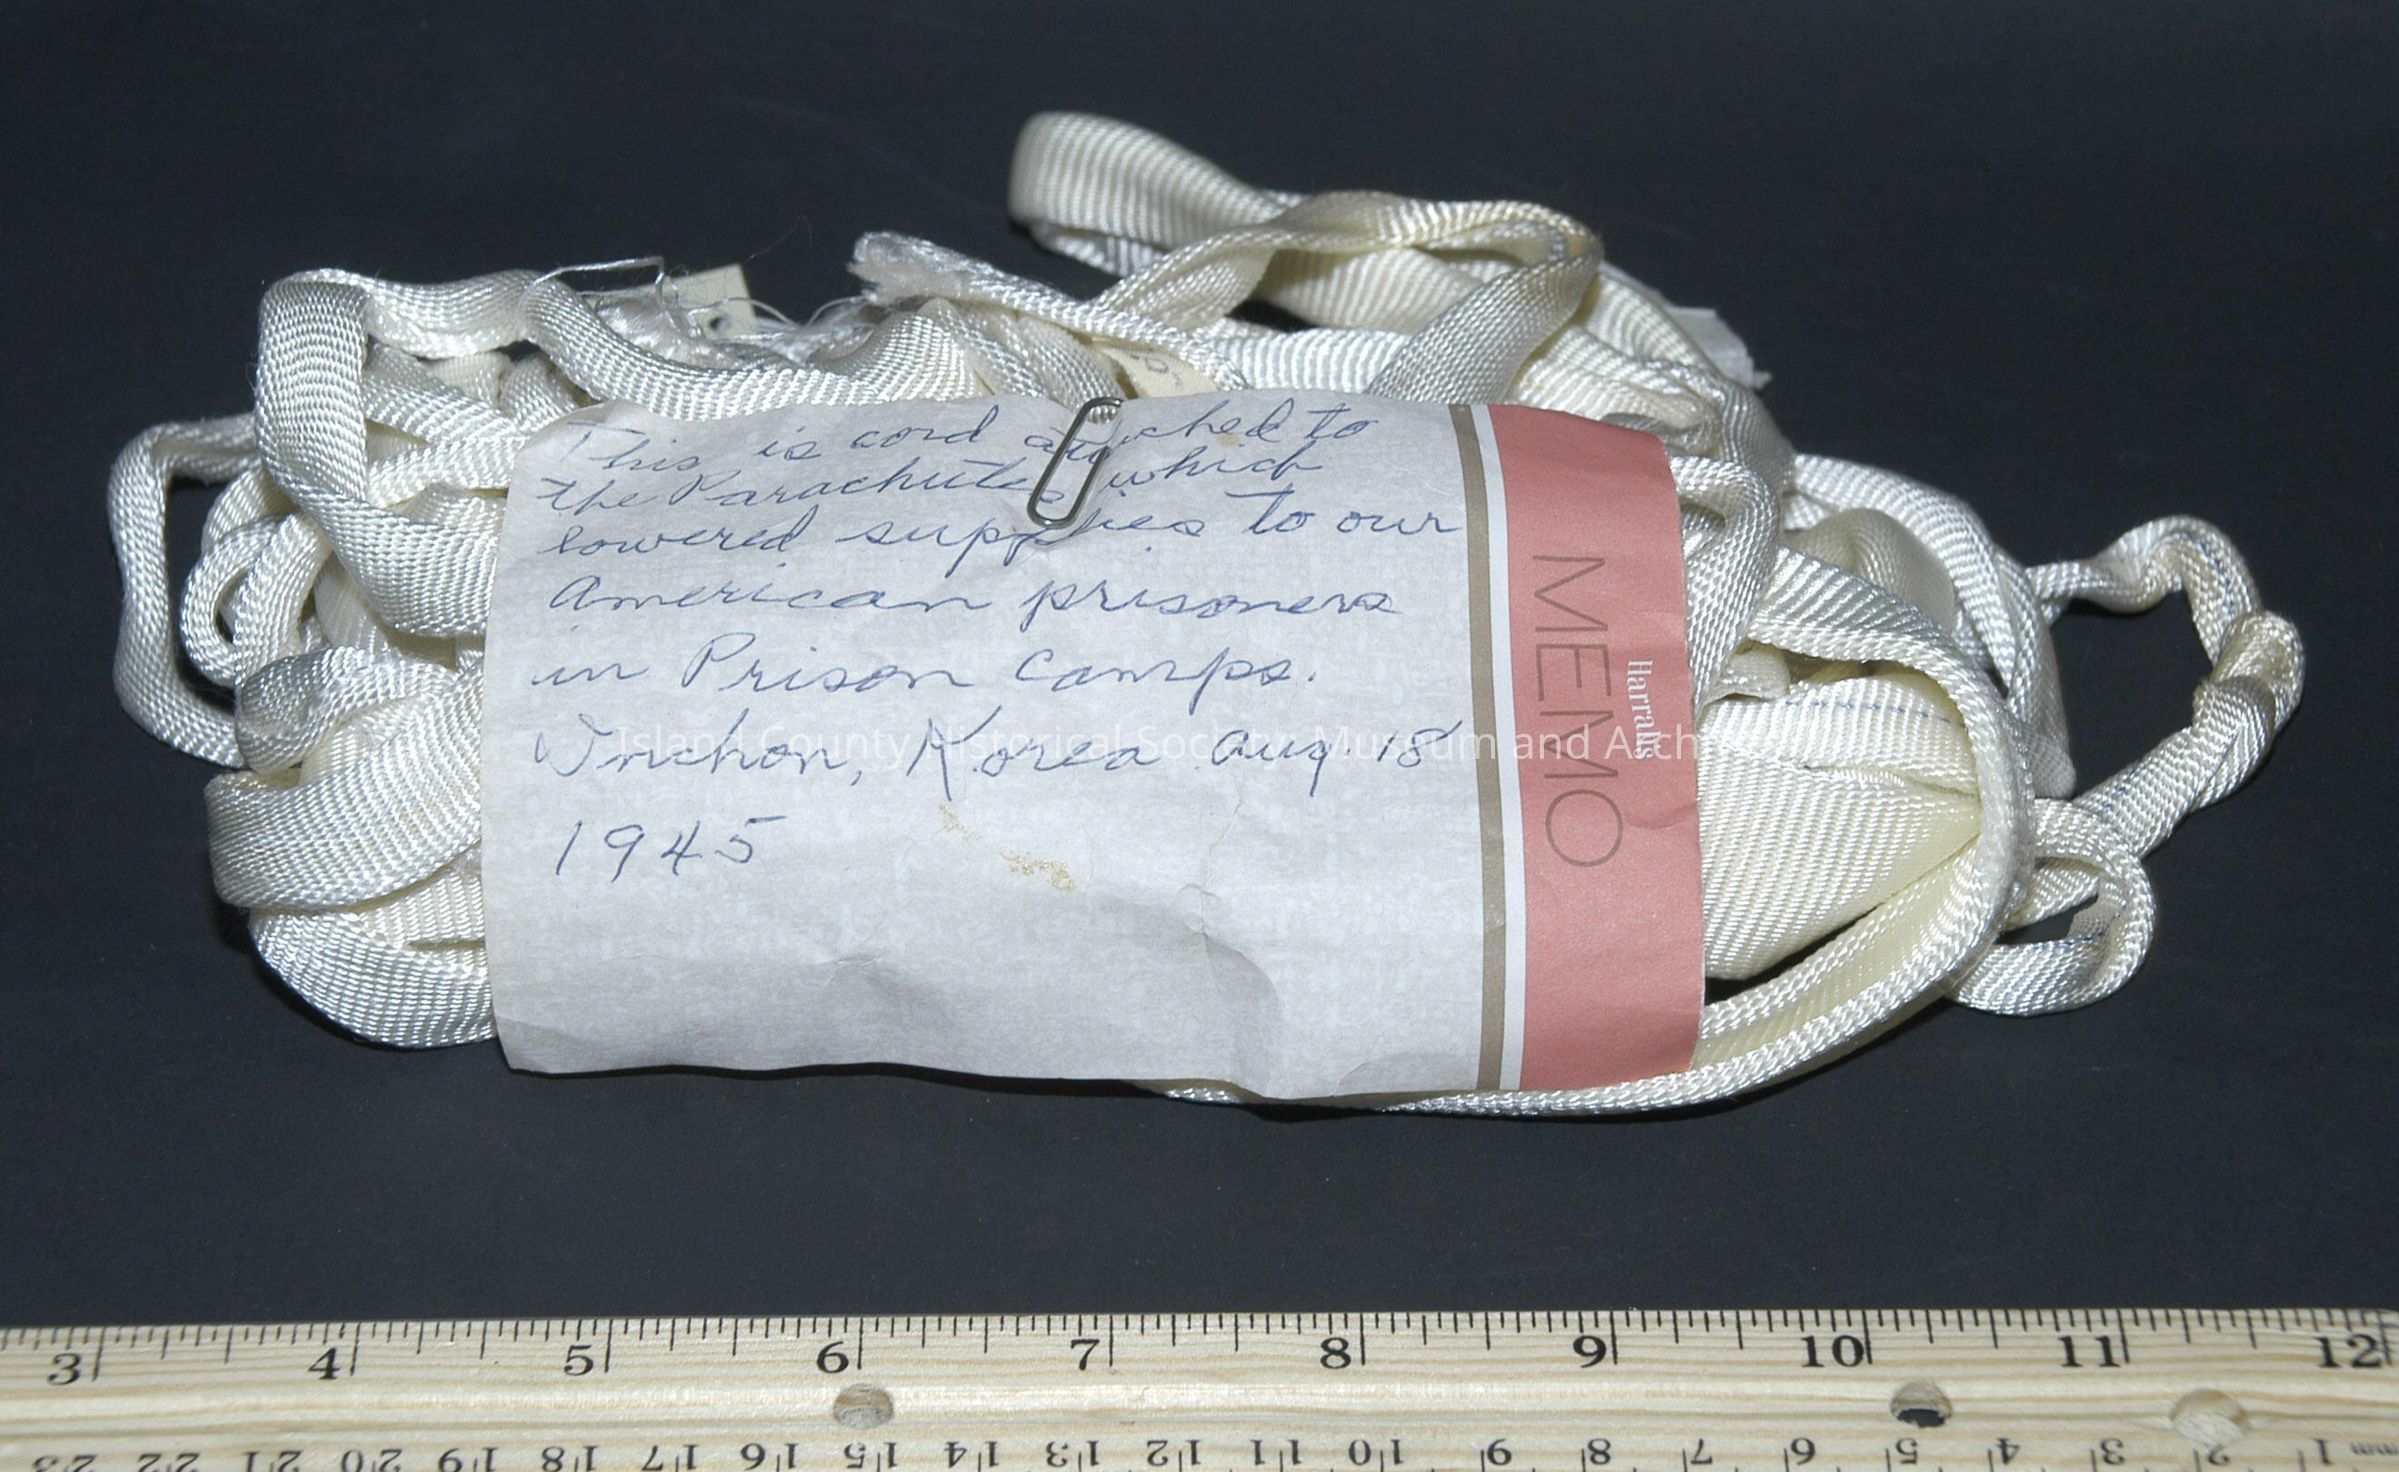 This is cord attached to
the Parachutes which
lowered supplies to our
American prisoners
in Prison Camps.
Inchon, Korea Aug. 18
1945
MEMO
Harralls
Island County Historical Society Museum and Archives
3 4 5 6 7 8 9 10 11 12
23 22 21 20 19 18 17 16 15 14 13 12 11 10 9 8 7 6 5 4 3 2 1 mm